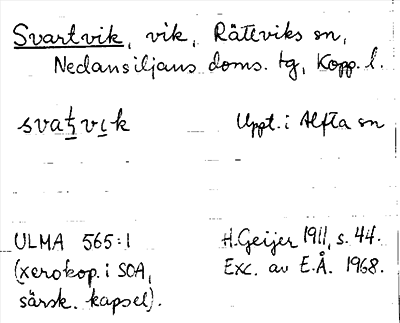 Svartvik, vik, Rättviks sn,
Nedansiljans doms. tg, Kopp. l.
svaṭvi̱k Uppt. i Alfta sn
ULMA 565:1 H. Geijer 1911, s. 44.
(xerokop. i SOA, Exc. av E.Å. 1968.
särsk. kapsel).